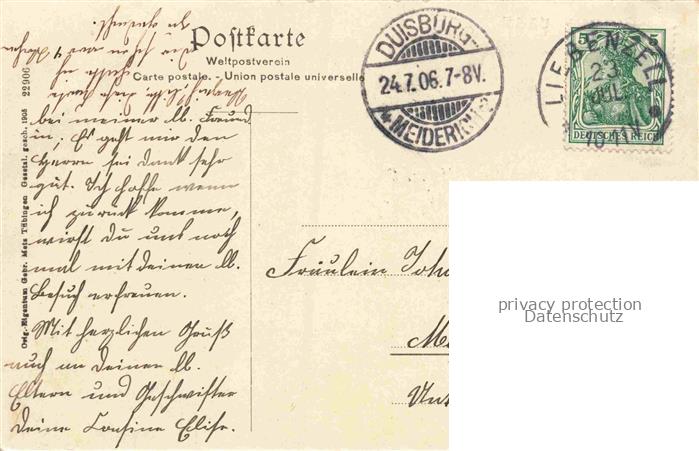 Postkarte
Weltpostverein
Carte postale. - Union postale universelle
22906
Orig.-Eigentum Gebr. Metz Tübingen Gesetzl. gesch. 1905
DUISBURG-
24.7.06.7-8V.
MEIDERICH
LIEBENZELL
23
JUL
5 5
DEUTSCHES REICH
bei meiner lb. Freund
in; Es geht mir dem
Herrn sei dank sehr
gut. Ich hoffe wenn
ich zurück komme,
wirst Du uns noch
mal mit deinen lb.
Besuch erfreuen.
Mit herzlichen Gruß
auch an Deinen lb.
Eltern und Geschwister
Deine Cousine Elise.
Fräulein Joh
privacy protection
Datenschutz